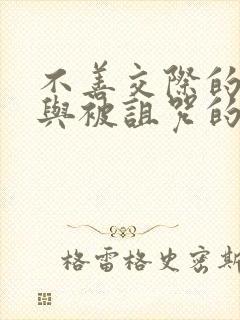 不善交際的
與被詛咒的
格雷格史密斯